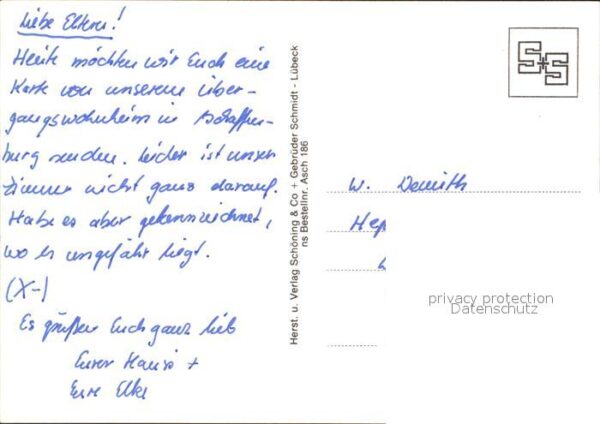 Liebe Eltern!
Heute möchten wir Euch eine
Karte von unserem Über-
gangswohnheim in Aschaffen-
burg senden. Leider ist unser
Zimmer nicht ganz darauf.
Habe es aber gekennzeichnet,
wo es ungefähr liegt.
(X-)
Es grüßen Euch ganz lieb
Euer +
Eure Elke
Herst. u. Verlag Schöning & Co + Gebrüder Schmidt - Lübeck
ns Bestellnr. Asch 186
S+S
W. Demuth
Hep
privacy protection
Datenschutz